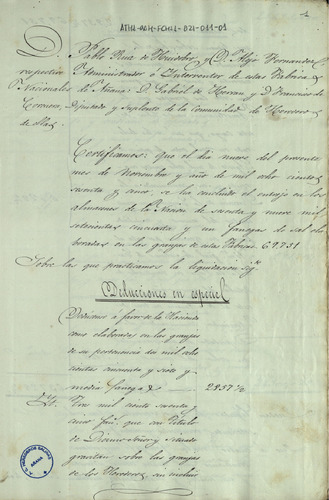 ATHA-DAH-FCHLI-021-011-01
D. Pablo Ruiz de Huidobro y D. Alejo Fernandez
respectivo Administrador e Interventor de estas Fabricas
Nacionales de Añana: D. Gabriel de Herran y D. Francisco de
Diputado y Suplente de la Comunidad de Herederos
de ellas
Certificamos: que el dia nueve del presente
mes de Noviembre y año de mil ocho cientos
y cinco, se ha concluido el entrojo en los
almacenes de la Nacion de sesenta y nueve mil
setecientas cincuenta y una fanegas de sal ela-
boradas en las granjas de estas Fabricas 69,751
Sobre las que practicamos la liquidacion sig.te
Deducciones en especie
Deducimos a favor de la Hacienda
como elaboradas en las granjas
de su pertenencia dos mil ocho
cientas cincuenta y siete y
media fanegas 2857 1/2
Yd. Tres mil ciento sesenta y
cinco fan.s que con titulo
de Diezmo y Situado
gravitan sobre las granjas
de los Herederos, sin incluir